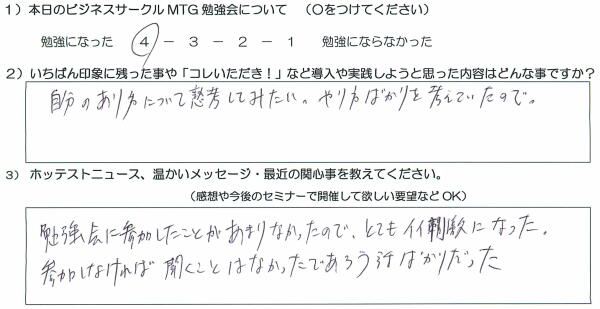 1）本日のビジネスサークルMTG勉強会について　（○をつけてください）
勉強になった　4 － 3 － 2 － 1　勉強にならなかった
2）いちばん印象に残った事や「コレいただき！」など導入や実践しようと思った内容はどんな事ですか？
自分のあり方について思考してみたい。やり方ばかりを考えていたので。
3）ホッテストニュース、温かいメッセージ・最近の関心事を教えてください。
（感想や今後のセミナーで開催して欲しい要望などOK）
勉強会に参加したことがあまりなかったので、とてもイイ刺激になった。
参加しなければ聞くことはなかったであろう話ばかりだった